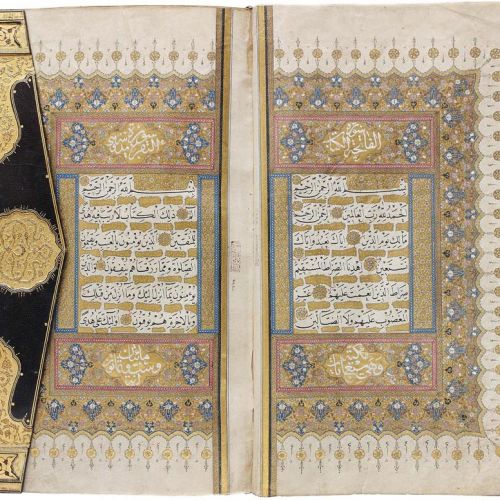 سورة الفاتحة الكتاب
بسم الله الرحمن الرحيم
الحمد لله رب العالمين الرحمن الرحيم
مالك يوم الدين اياك نعبد واياك
نستعين اهدنا الصراط المستقيم
صراط الذين انعمت عليهم غير
المغضوب عليهم ولا الضالين
مكية
وهي سبع ايات
سورة البقرة
بسم الله الرحمن الرحيم
الم ذلك الكتاب لا ريب فيه هدى
للمتقين الذين يؤمنون بالغيب ويقيمون
الصلوة ومما رزقناهم ينفقون والذين
يؤمنون بما انزل اليك وما انزل من قبلك
وبالاخرة هم يوقنون اولئك على هدى